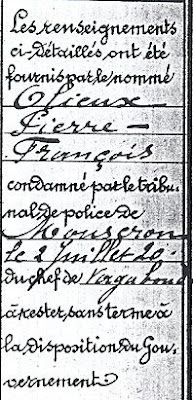 Les renseignements
ci-détaillés, ont été
fournis par le, nommé
Olieux
Pierre –
François
condamné par le tribu-
nal, de police de
Mouscron
le 2 Juillet 20.
du chef de Vagabond
à rester, sans terme à
la disposition du Gou-
vernement.